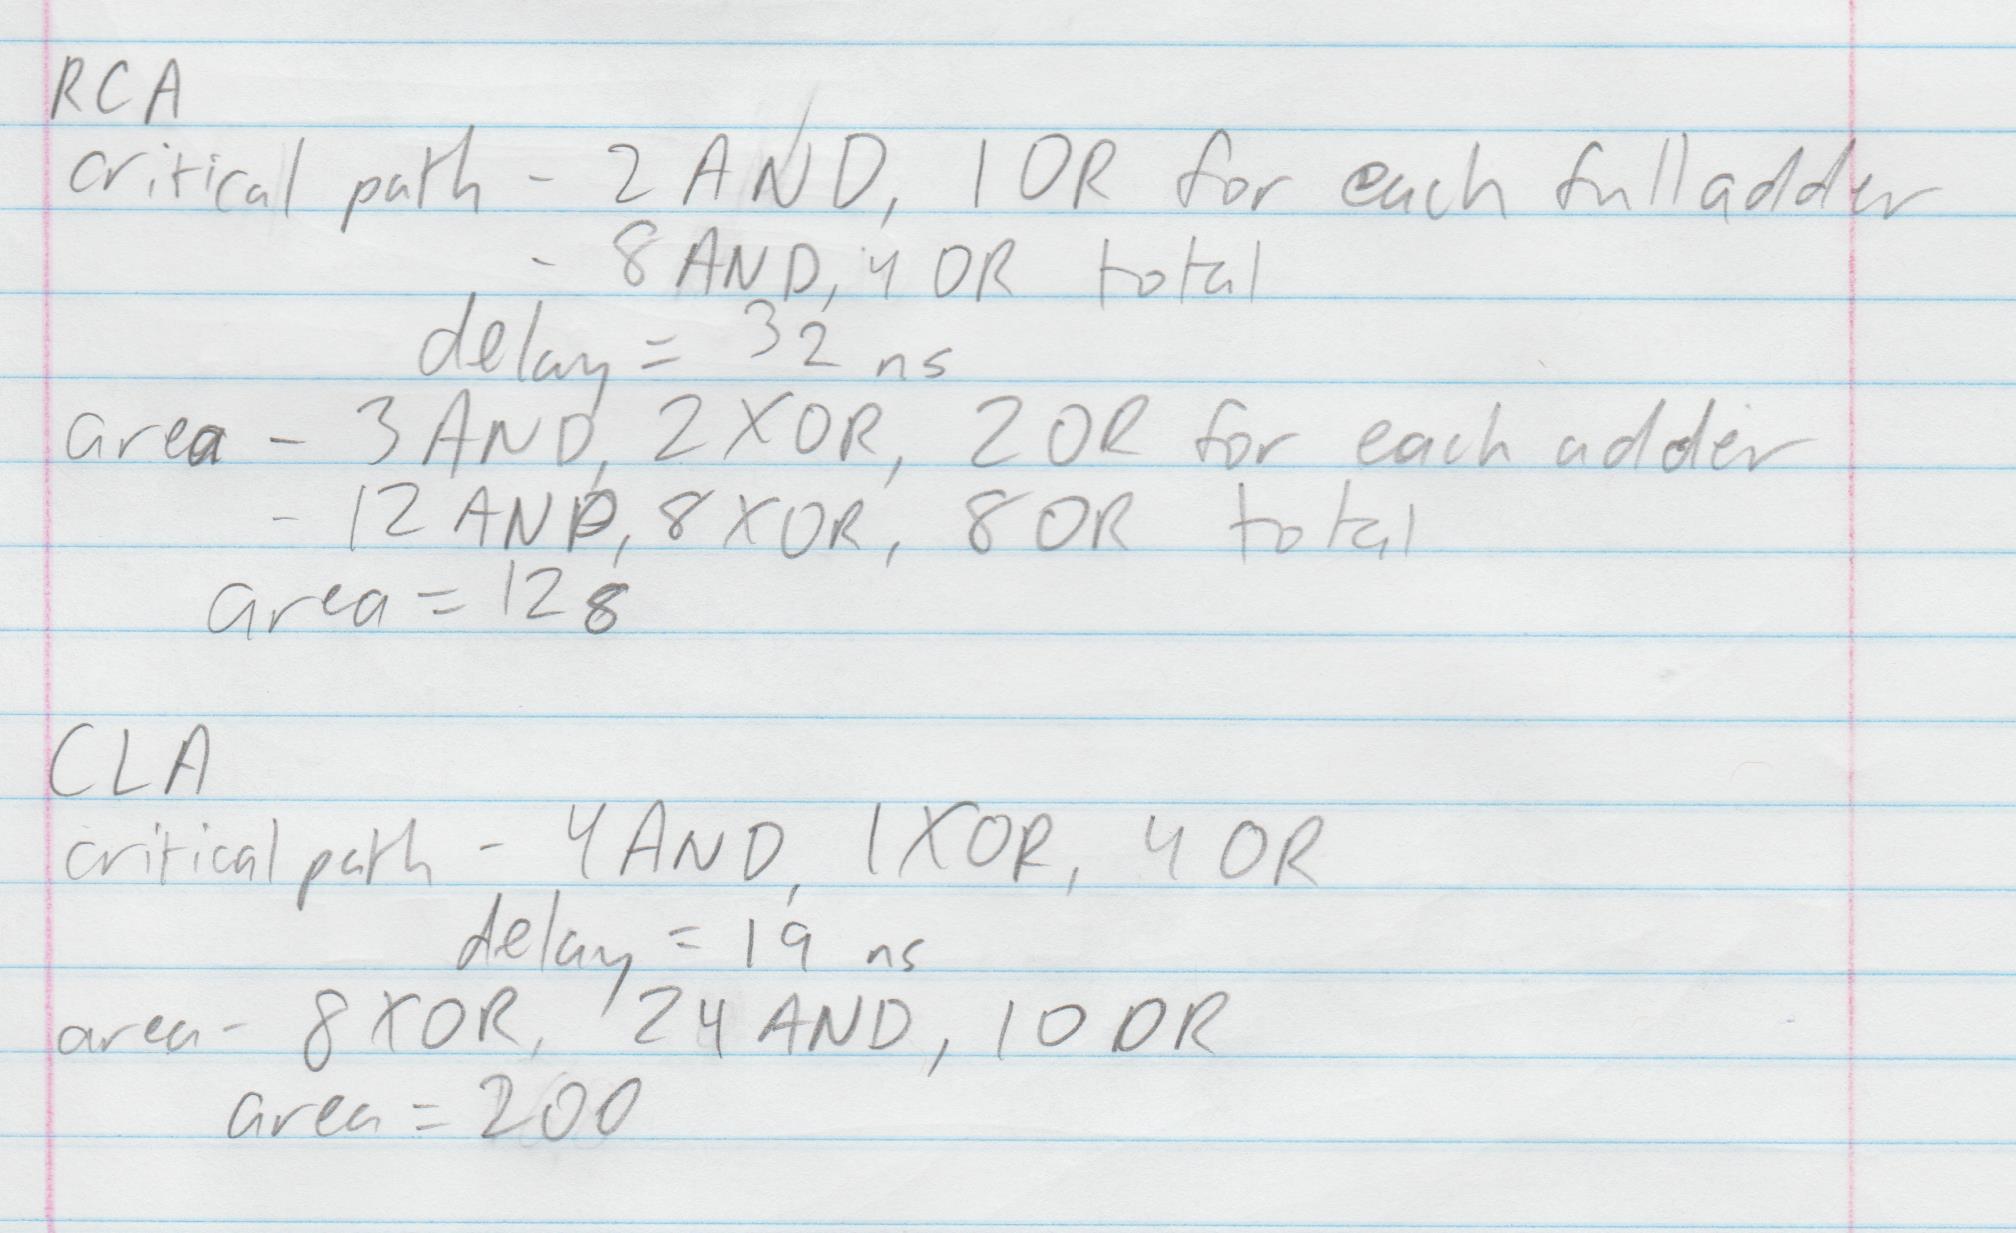 RCA
critical path - 2 AND, 1 OR for each full adder
- 8 AND, 4 OR total
delay = 32 ns
area - 3 AND, 2 XOR, 2 OR for each adder
- 12 AND, 8 XOR, 8 OR total
area = 128
CLA
critical path - 4 AND, 1 XOR, 4 OR
delay = 19 ns
area - 8 XOR, 24 AND, 10 OR
area = 200